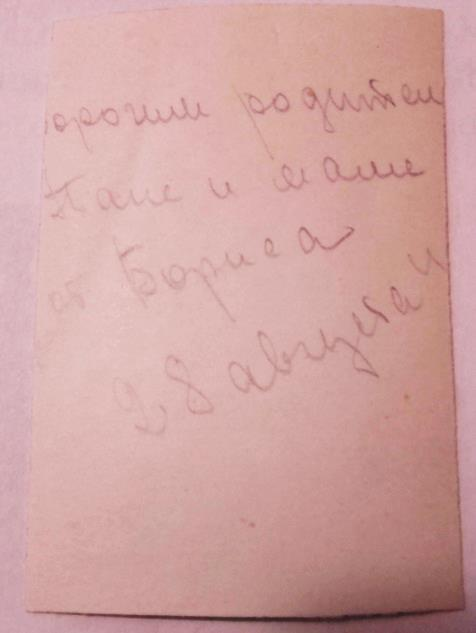 орогим родител
Папе и маме
от Бориса
28 августа